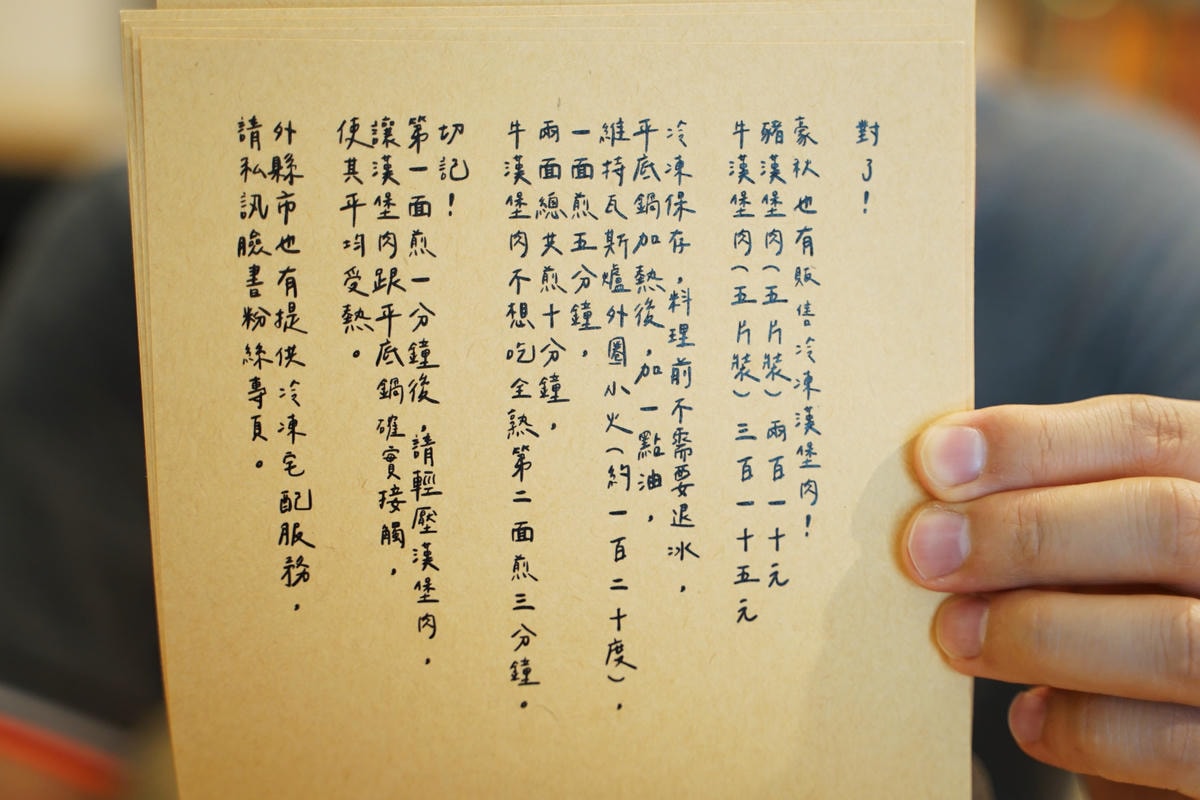 對了！
豪秋也有販售冷凍漢堡肉！
豬漢堡肉（五片裝）兩百一十元
牛漢堡肉（五片裝）三百一十五元
冷凍保存，料理前不需要退冰，
平底鍋加熱後，加一點油，
維持瓦斯爐外圈小火（約一百二十度），
一面煎五分鐘，
兩面總共煎十分鐘，
牛漢堡肉不想吃全熟第二面煎三分鐘。
切記！
第一面煎一分鐘後，請輕壓漢堡肉，
讓漢堡肉跟平底鍋確實接觸，
使其平均受熱。
外縣市也有提供冷凍宅配服務，
請私訊臉書粉絲專頁。